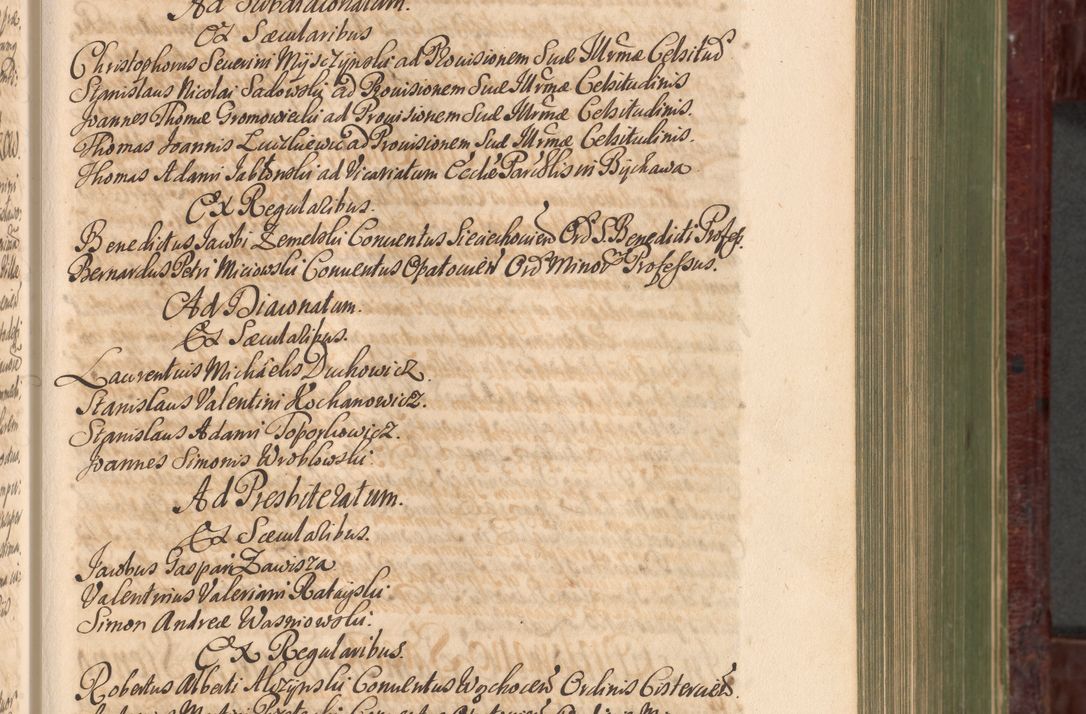 Ad Subdiaconatum.
Ex Sæcularibus
Christophorus Severini Mysczynski ad Provisionem Suæ Illrmæ Celsitud
Stanislaus Nicolai Sadowski ad Provisionem Suæ Illrmæ Celsitudinis
Joannes Thomæ Gromowiecki ad Provisionem Suæ Illrmæ Celsitudinis.
Thomas Joannis ad Provisionem Suæ Illrmæ Celsitudinis.
Thomas Adami Jabłonski ad Vicariatum Eccliæ Parchlis in Bychawa
Ex Regularibus.
Benedictus Jacobi Zemelski Conventus Sieciechovien Ord S. Benedicti Profes.
Bernardus Petri Miciowski Conventus Opatovien Ord Minor Professus.
Ad Diaconatum.
Ex Sæcularibus.
Laurentius Michaelis Duchowicz.
Stanislaus Valentini Kochanowicz.
Stanislaus Adami Toporkowicz.
Joannes Simonis Wroblowski.
Ad Presbiteratum.
Ex Sæcularibus.
Jacobus Gaspari Zawisza
Valentinus ValerianiRatayski
Simon Andreæ Wasniowski.
Ex Regularibus.
Robertus Alberti Alczynski Conventus Wąchocen Ordinis Cistercien.